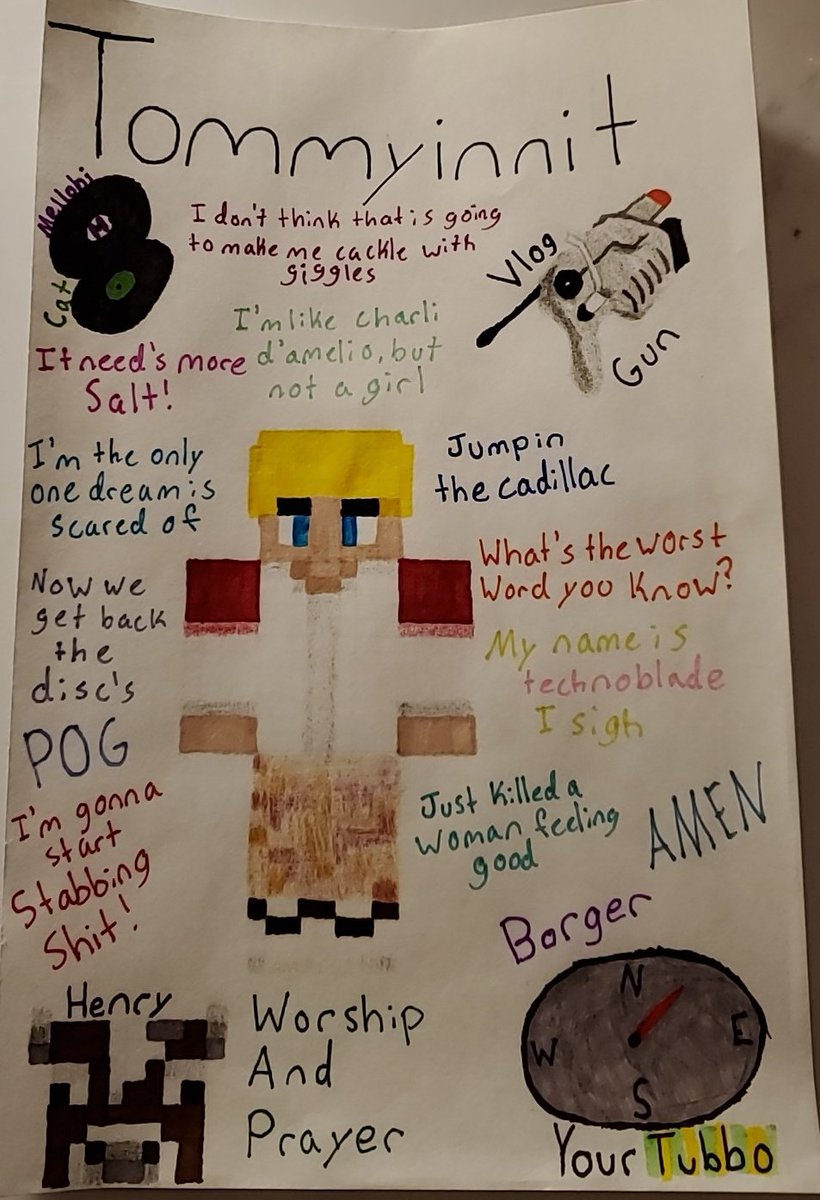 Tommyinnit
Mellohi
M
Cat
I don't think that is going
to make me cackle with
giggles
Vlog
Gun
I'm like charli
d'amelio, but
not a girl
It need's more
Salt!
I'm the only
one dream is
scared of
Jump in
the cadillac
What's the worst
Word you know?
Now we
get back
the
disc's
My name is
technoblade
I sigh
POG
I'm gonna
start
Stabbing
Shit!
Just killed a
woman feeling
good
AMEN
Borger
Henry
Worship
And
Prayer
N
W
E
S
Your Tubbo